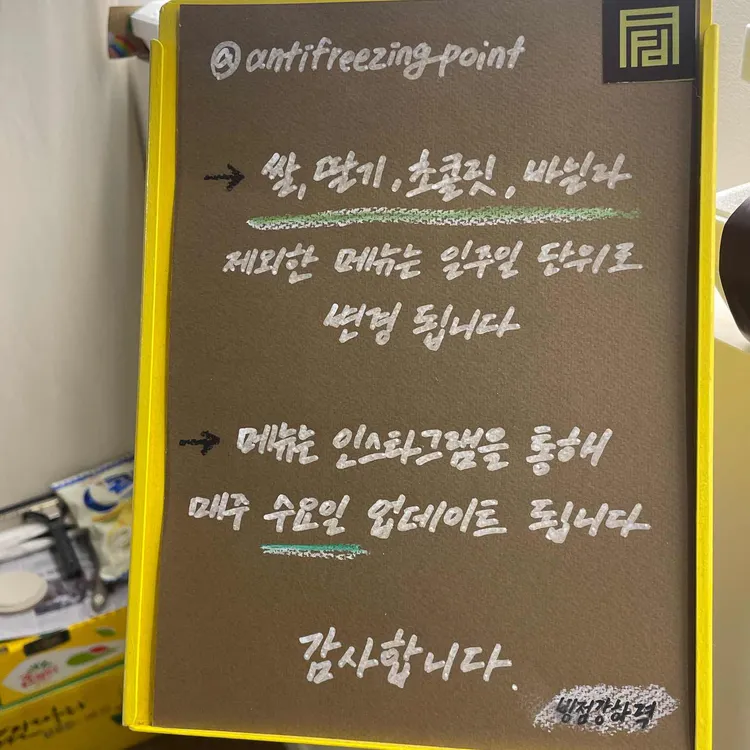 @antifreezingpoint
→ 쌀, 딸기, 초콜릿, 바닐라
제외한 메뉴는 일주일 단위로
변경 됩니다
→ 메뉴는 인스타그램을 통해
매주 수요일 업데이트 됩니다
감사합니다.
빙점강하력